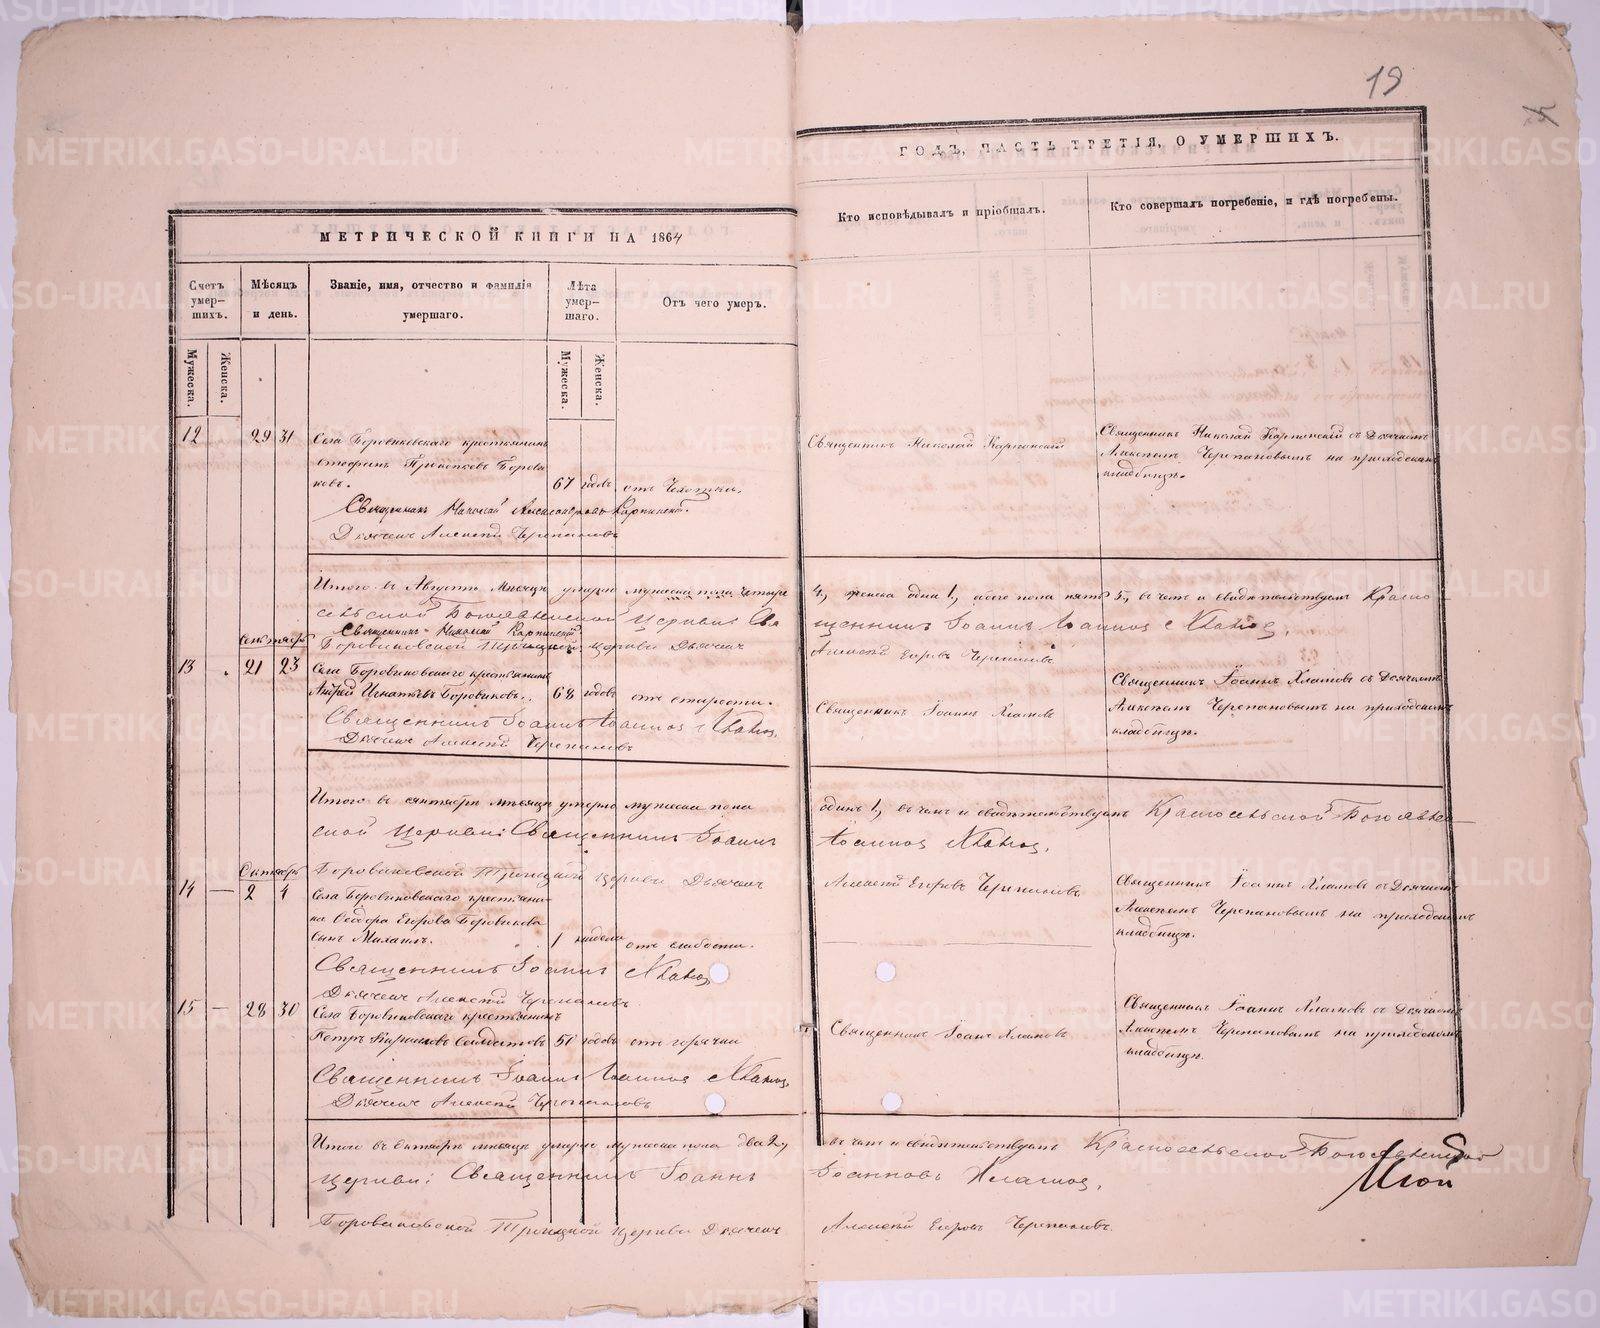 19
МЕТРИЧЕСКОЙ КНИГИ НА 1864
ГОДЪ, ЧАСТЬ ТРЕТІЯ, О УМЕРШИХЪ.
Счетъ умер-
шихъ.
Мѣсяцъ
и день.
Званіе, имя, отчество и фамилія
умершаго.
Лѣта
умер-
шаго.
Отъ чего умеръ.
Кто исповѣдывалъ и пріобщалъ.
Кто совершалъ погребеніе, и гдѣ погребены.
Мужеска.
Женска.
Мужеска.
Женска.
12 29 31 Села Боровиковскаго крестьянинъ
Стефанъ Прокопьевъ Борови
ковъ. 67 годовъ отъ Чахотки.
Священникъ Николай Карпинскій
Священникъ Николай Карпинскій съ Дьячкомъ
Алексѣемъ Черепановымъ на приходскомъ
кладбищѣ.
Священникъ Николай Александровъ Карпинскій.
Дьячекъ Алексѣй Черепановъ
Итого въ Августѣ мѣсяцѣ умерло мужеска пола четыре
4, женска одна 1, обоего пола пять 5, въ чемъ и свидѣтельствуемъ Красно-
сельской Богоявленской Церкви Свя
щенникъ Іоаннъ Іоанновъ Хламовъ.
Священникъ Николай Карпинскій
Боровиковской Троицкой церкви Дьячекъ
Алексѣй Егоровъ Черепановъ
сентябрь
13 21 23 Села Боровиковскаго крестьянинъ
Андрей Игнатьевъ Боровиковъ. 68 годовъ отъ старости.
Священникъ Іоаннъ Хламовъ
Священникъ Іоаннъ Хламовъ съ Дьячкомъ
Алексѣемъ Черепановымъ на приходскомъ
кладбищѣ.
Священникъ Іоаннъ Іоанновъ Хламовъ.
Дьячекъ Алексѣй Черепановъ
Итого въ сентябрѣ мѣсяцѣ умерло мужеска пола
одинъ 1, въ чемъ и свидѣтельствуемъ Красносельской Богоявлен-
ской Церкви: Священникъ Іоаннъ
Іоанновъ Хламовъ.
Боровиковской Троицкой церкви Дьячекъ
Алексѣй Егоровъ Черепановъ
Октябрь
14 — 2 4 Села Боровиковскаго крестьяни-
на Ѳеодора Егорова Боровикова
сынъ Михаилъ. 1 недели отъ слабости.
Священникъ Іоаннъ Хламовъ съ Дьячкомъ
Алексѣемъ Черепановымъ на приходскомъ
кладбищѣ.
Священникъ Іоаннъ Хламовъ
Дьячекъ Алексѣй Черепановъ.
15 — 28 30 Села Боровиковскаго крестьянинъ
Петръ Солдатовъ 51 годовъ отъ горячки
Священникъ Іоаннъ Хламовъ
Священникъ Іоаннъ Хламовъ съ Дьячкомъ
Алексѣемъ Черепановымъ на приходскомъ
кладбищѣ.
Священникъ Іоаннъ Іоанновъ Хламовъ.
Дьячекъ Алексѣй Черепановъ
Итого въ Октябрѣ мѣсяцѣ умерло мужеска пола два 2,
въ чемъ и свидѣтельствуемъ Красносельской Богоявленской
церкви: Священникъ Іоаннъ
Іоанновъ Хламовъ.
Боровиковской Троицкой церкви Дьячекъ
Алексѣй Егоровъ Черепановъ.
METRIKI.GASO-URAL.RU